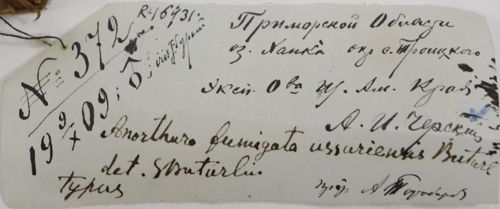 R-16431.
№ 372
19 9/X 09; ♂
Приморской Области
оз. Ханка окр. с. Троицкого
Эксп. Ова И. Ам. Края
А. И. Черский
Anorthura fumigata ussuriensis Buturl.
det. SButurlin
typus